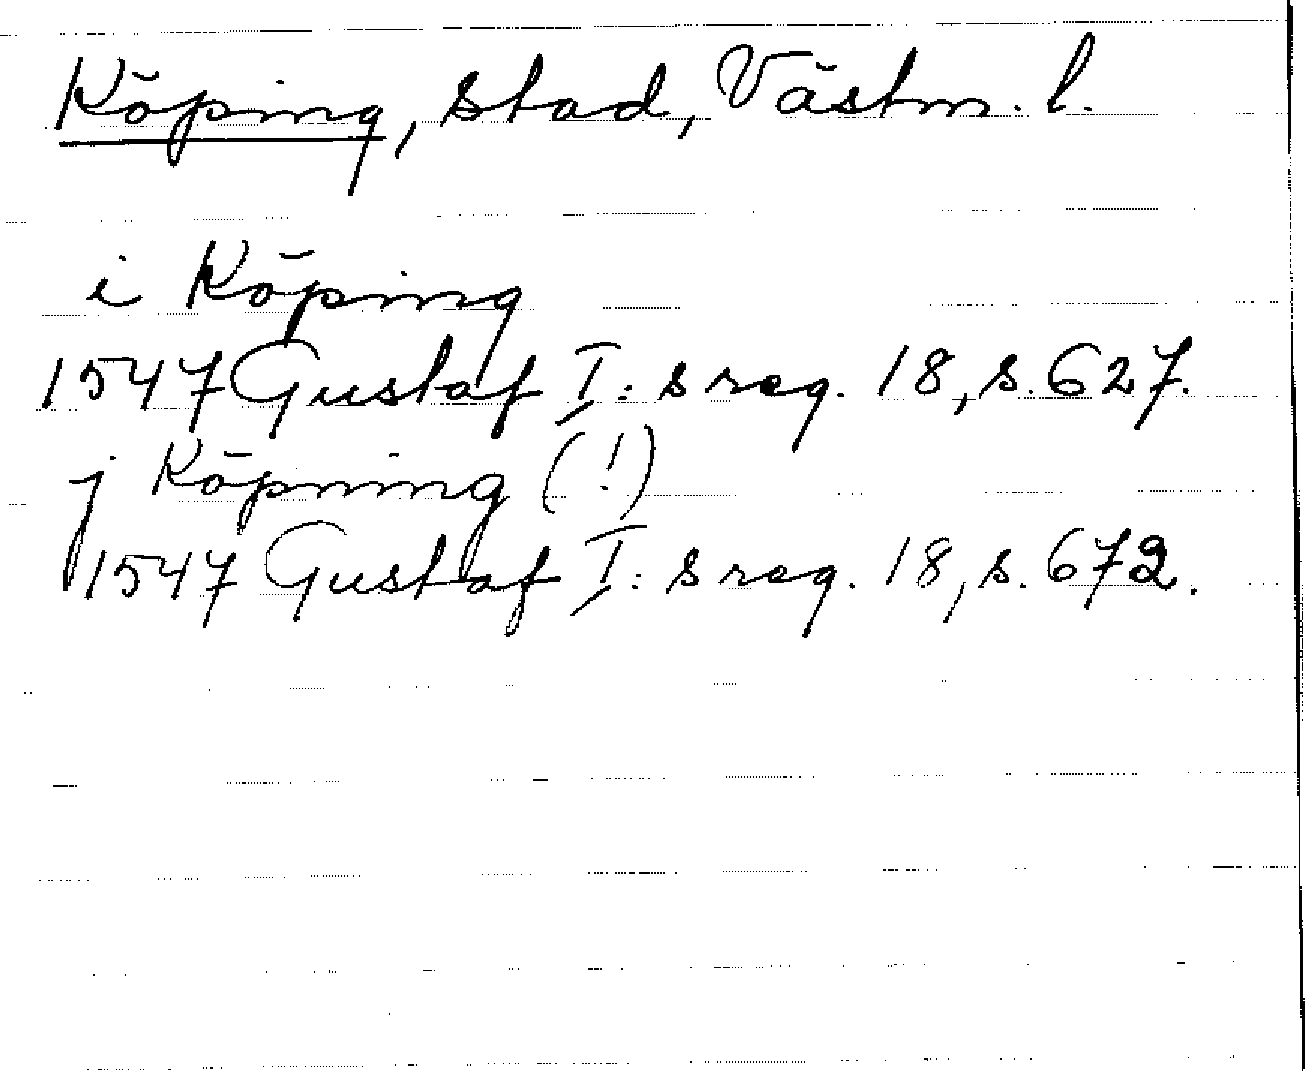 Köping, stad, Västm. l.
i Köping
1547 Gustaf I:s reg. 18, s. 627.
j Köpning (!)
1547 Gustaf I:s reg. 18, s. 672.